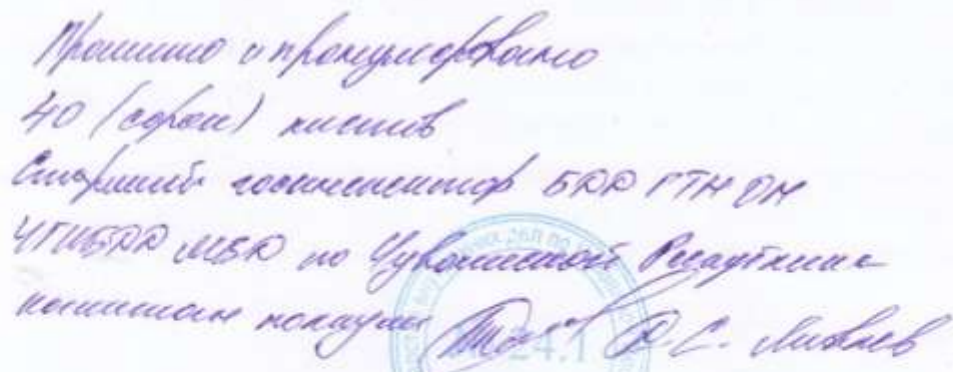 Прошито и пронумеровано
40 (сорок) листов
Старший госинспектор БДД ГТН ОН
УГИБДД МВД по Чувашской Республике
капитан полиции
24.1